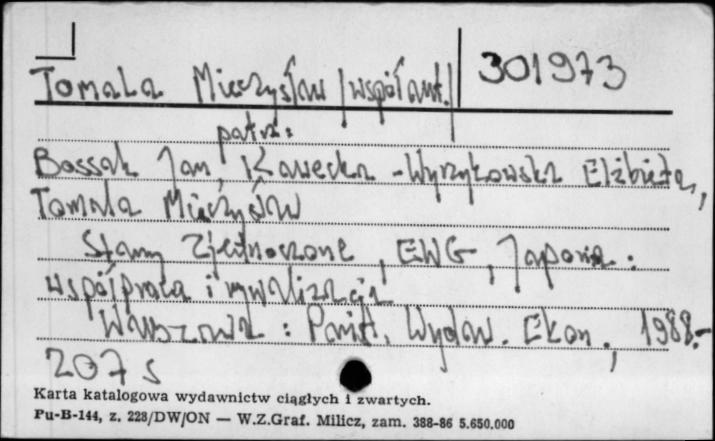 Tomala Mieczysław /współaut./ 301973
patrz:
Bossak Jan, Kawecka-Wyrzykowska Elżbieta,
Tomala Mieczysław
Stany Zjednoczone, EWG, Japonia :
współpraca i rywalizacja
Warszawa : Państ. Wydaw. Ekon., 1988.-
207 s
Karta katalogowa wydawnictw ciągłych i zwartych.
Pu-B-144, z. 228/DW/ON — W.Z.Graf. Milicz, zam. 388-86 5.650.000